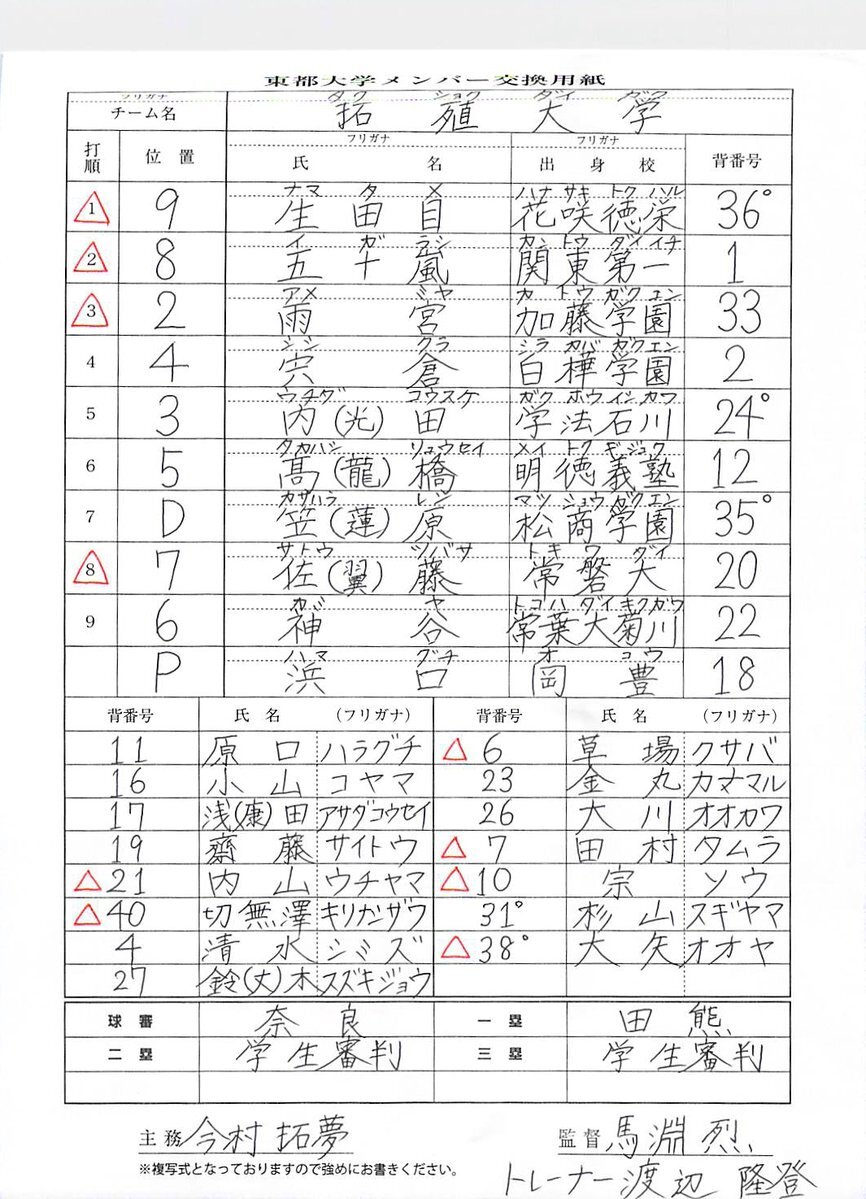 東都大学メンバー交換用紙
フリガナ タク ショク ダイ ガク
チーム名 拓殖大学
打順 位置 フリガナ 氏名 フリガナ 出身校 背番号
ナマ タ メ ハナ サキ トク ハル
1 9 生田目 花咲徳栄 36°
イ ガ ラシ カントウ ダイ イチ
2 8 五十嵐 関東第一 1
アメ ミヤ カ トウ ガク エン
3 2 雨宮 加藤学園 33
シシ クラ シラ カバ ガク エン
4 4 宍倉 白樺学園 2
ウチダ コウスケ ガク ホウ イシ カワ
5 3 内(光)田 学法石川 24°
タカハシ リュウセイ メイ トク ギジュク
6 5 髙(龍)橋 明徳義塾 12
カサハラ レン マツ ショウ ガク エン
7 D 笠(蓮)原 松商学園 35°
サトウ ツバサ トキ ワ ダイ
8 7 佐(翼)藤 常磐大 20
カミ ヤ トコハ ダイ キクガワ
9 6 神谷 常葉大菊川 22
ハマ グチ オ コウ
P 浜口 岡豊 18
背番号 氏名 (フリガナ) 背番号 氏名 (フリガナ)
11 原口 ハラグチ △6 草場 クサバ
16 小山 コヤマ 23 金丸 カナマル
17 浅(康)田 アサダコウセイ 26 大川 オオカワ
19 齋藤 サイトウ △7 田村 タムラ
△21 内山 ウチヤマ △10 宗 ソウ
△40 切無澤 キリナシザワ 31° 杉山 スギヤマ
4 清水 シミズ △38° 大矢 オオヤ
27 鈴(丈)木 スズキジョウ
球審 奈良 一塁 田熊
二塁 学生審判 三塁 学生審判
主務 今村拓夢 監督 馬淵烈
※複写式となっておりますので強めにお書きください。
トレーナー渡辺 隆登